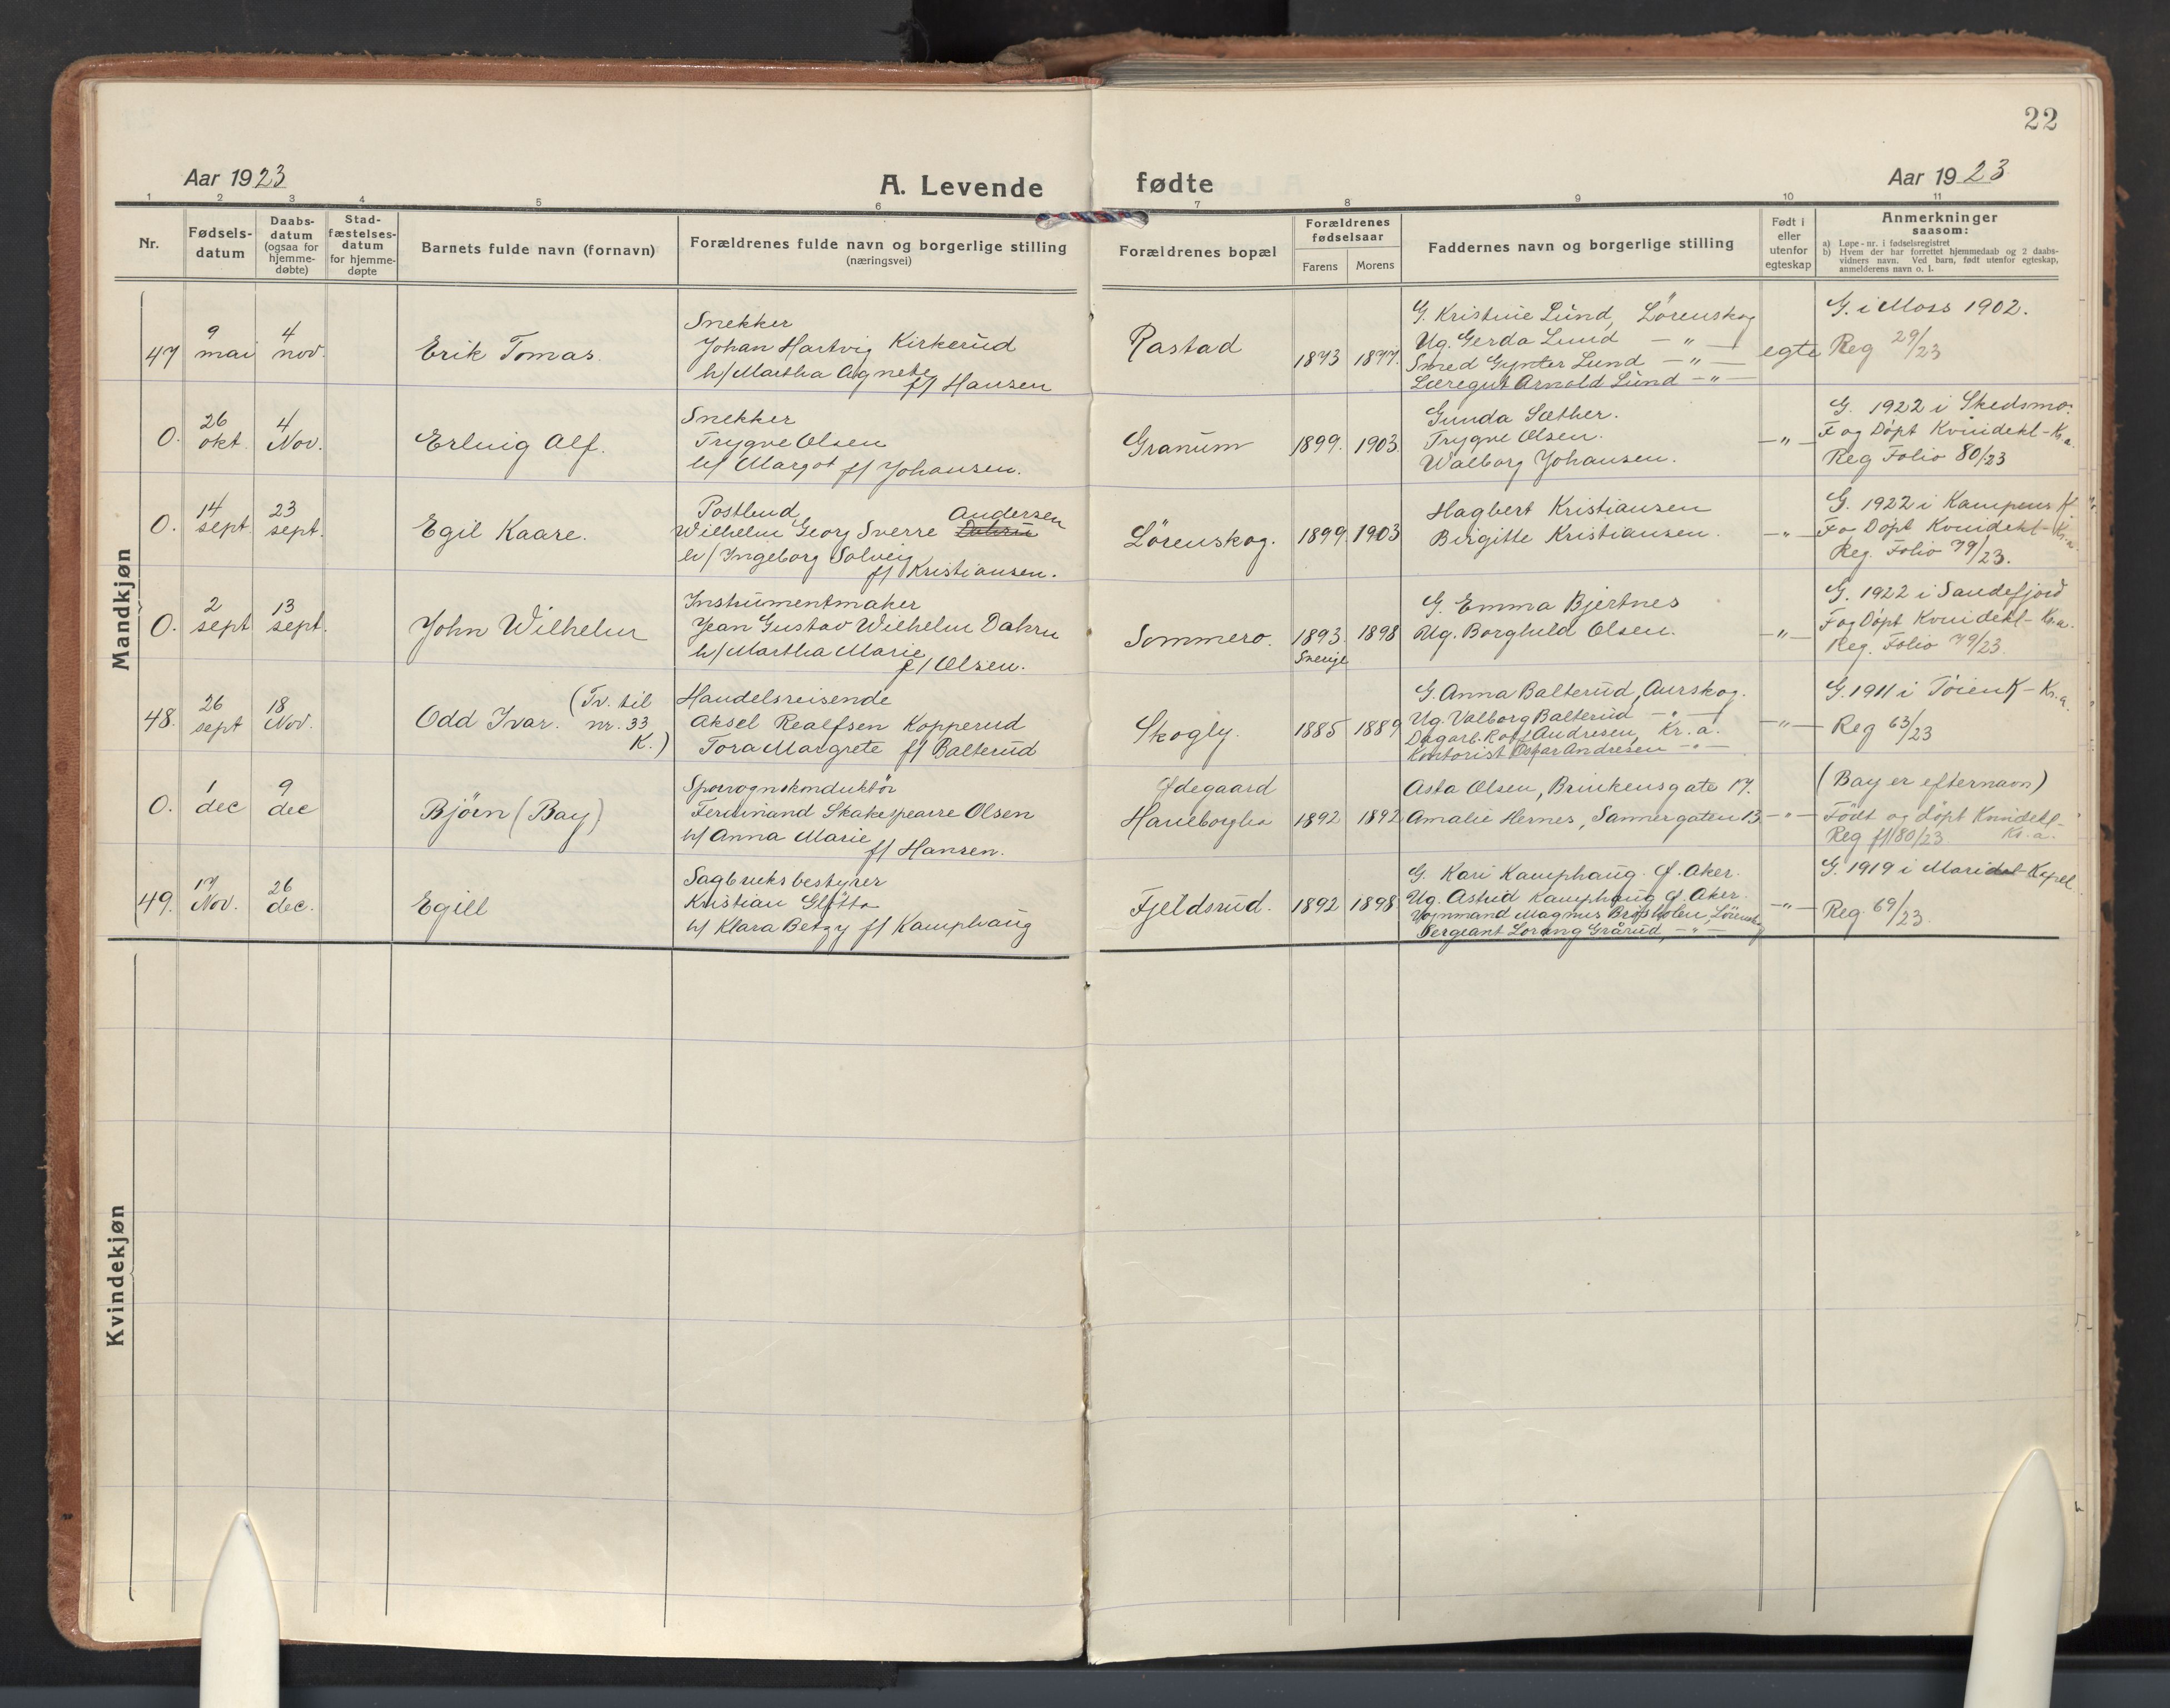 22
Aar 1923
A. Levende fødte
Aar 1923
1 2 3 4 5 6 7 8 9 10 11
Nr.
Fødsels-
datum
Daabs-
datum
(ogsaa for
hjemme-
døbte)
Stad-
fæstelses-
datum
for hjemme-
døpte
Barnets fulde navn (fornavn)
Forældrenes fulde navn og borgerlige stilling
(næringsvei)
Forældrenes bopæl
Forældrenes
fødselsaar
Farens Morens
Faddernes navn og borgerlige stilling
Født i
eller
utenfor
egteskap
Anmerkninger
saasom:
a) Løpe-nr. i fødselsregistret
b) Hvem der har forrettet hjemmedaab og 2 daabs-
vidners navn. Ved barn, født utenfor egteskap,
anmelderens navn o. l.
Mandkjøn
47
9
mai
4
nov.
Erik Tomas.
Snekker
Johan Hartvig Kirkerud
h/Martha Agnete
f/ Hansen
Rastad
1873 1877.
G. Kristine Lund, Lörenskog
Ug. Gerda Lund — " —
Smed Gynter Lund — " —
Læregut Arnold Lund — " —
egte
G. i Moss 1902.
Reg 29/23
0.
26
okt.
4
Nov.
Erling Alf.
Snekker
Trygve Olsen
h/ Margot f/ Johansen.
Granum
1899. 1903.
Gunda Sæther.
Trygve Olsen.
Walborg Johansen.
— " —
G. 1922 i Skedsmo.
F og Döpt Kvindekl-Kr.a.
Reg Folio 80/23
0.
14
sept.
23
sept.
Egil Kaare.
Postbud
Andersen
Wilhelm Georg Sverre Dahrn
h/ Ingeborg Solveig
f/ Kristiansen.
Lörenskog.
1899. 1903
Hagbert Kristiansen
Birgitte Kristiansen.
— " —
G. 1922 i Kampens K.
F o Döpt Kvindekl-Kr.a.
Reg. Folio 79/23.
0.
2
sept
13
sept.
John Wilhelm
Instrumentmaker
Jean Gustav Wilhelm Dahrn
h/Martha Marie
f/ Olsen.
Sommero.
1893. 1898
Sverige
G. Emma Bjertnes
Ug. Borghild Olsen.
— " —
G. 1922 i Sandefjord
F og Döpt Kvindekl- Kr.a.
Reg. Folio 79/23.
48.
26
sept
18
Nov.
Odd Ivar. (Tv. til
nr. 33
K.)
Handelsreisende
Aksel Realfsen Kopperud
Tora Margrete f/ Balterud
Skogly.
1885 1889
G. Anna Balterud, Aurskog.
Ug. Valborg Balterud — " —
Dagarb. Rolf Andresen, Kr.a.
Kontorist Oskar Andresen — " —
— " —
G. 1911 i Töien K - Kr.a.
Reg 63/23
0.
1
dec
9
dec
Björn (Bay)
Sporvognskonduktör
Ferdinand Skakespearre Olsen
h/ Anna Marie
f/ Hansen.
Ødegaard
Haneborglia
1892 1892
Asta Olsen, Brinkensgate 17.
Amalie Hernes, Sannergaten 13
— " —
(Bay er efternavn)
Födt og döpt Kvindekl-
Kr.a.
Reg fl 180/23
49.
17
Nov.
26
dec.
Egill
Sagbruksbestyrer
Kristian Glötta
h/ Klara Betzy f/ Kamphaug
Fjeldsrud.
1892 1898
G. Kari Kamphaug. Ø. Aker.
Ug. Astrid Kamphaug Ø. Aker.
Magnus Lörenskog
Sergeant Lorang Grårud, — " —
— " —
G. 1919 i Maridal Kapel
Reg. 69/23.
Kvindekjøn